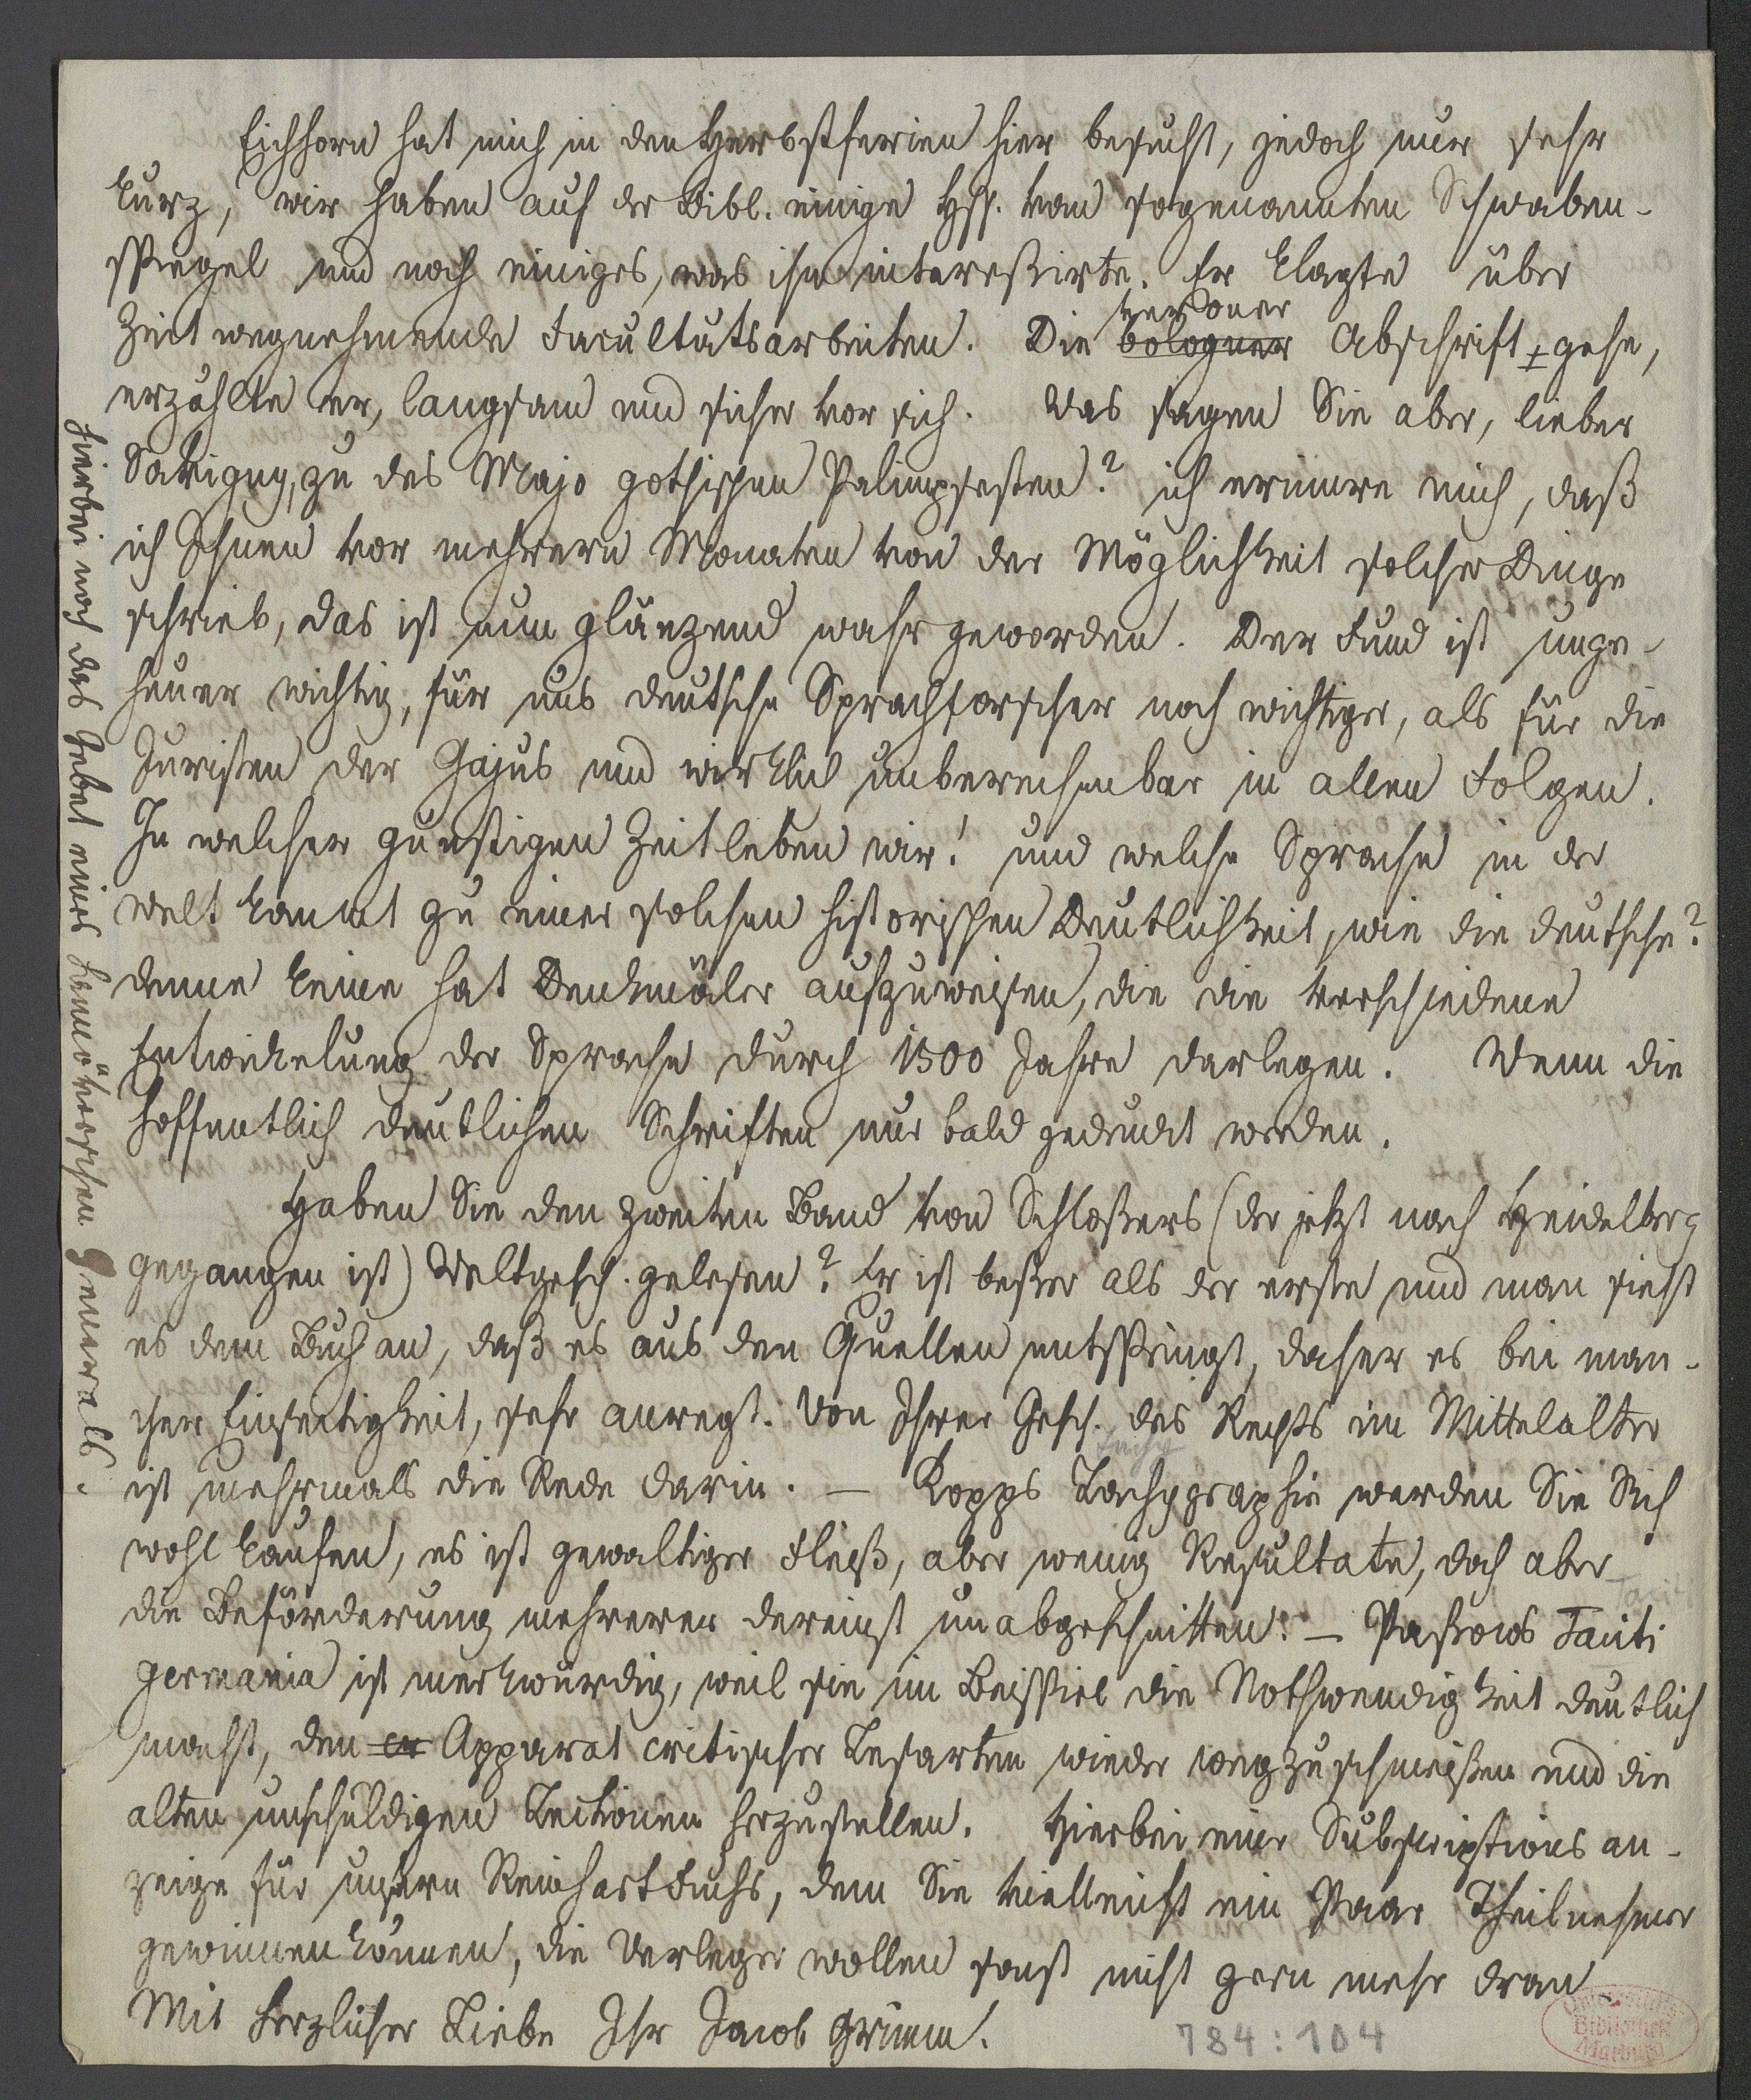 Eichhorn hat mich in den Herbstferien hier besucht, jedoch nur sehr
kurz, wir haben auf der Bibl. einige Hss. vom sogenannten Schwaben-
spiegel und noch einiges, was ihn interessirte. Er klagte über
veroneser
Zeit wegnehmende Facultätsarbeiten. Die bologner Abschrift gehe,
erzählte er, langsam und sicher vor sich. Was sagen Sie aber, lieber
Savigny, zu des Majo gothischen Palimpsesten? ich erinnere mich, daß
ich Ihnen vor mehrern Monaten von der Möglichkeit solcher Dinge
schrieb, das ist nun glänzend wahr geworden. Der Fund ist unge-
heuer wichtig, für uns deutsche Sprachforscher noch wichtiger, als für die
Juristen der Gajus und wirklich unberechenbar in allen Folgen.
In welcher günstigen Zeit leben wir! und welche Sprache in der
Welt kommt zu einer solchen historischen Deutlichkeit, wie die deutsche?
denn keine hat Denkmäler aufzuweisen, die die verschiedene
Entwickelung der Sprache durch 1500 Jahre darlegen. Wenn die
hoffentlich deutlichen Schriften nur bald gedruckt werden.
Haben Sie den zweiten Band von Schloßers (der jetzt nach Heidelberg
gegangen ist) Weltgesch. gelesen? Er ist beßer als der erste und man sieht
es dem Buch an, daß es aus den Quellen entspringt, daher es bei man-
cher Einseitigkeit, sehr anregt. Von Ihrer Gesch. des Rechts im Mittelalter
ist mehrmals die Rede darin. — Kopps Tachygraphie werden Sie Sich
wohl kaufen, es ist gewaltiger Fleiß, aber wenig Resultate, doch aber
die Beförderung mehrerer dereinst unabgeschnitten. — Paßows Taciti
germania ist merkwürdig, weil sie im Beispiel die Nothwendigkeit deutlich
macht, den cr Apparat critischer Lesarten wieder wegzuschmeißen und die
alten unschuldigen Lectionen herzustellen. Hierbei eine Subscriptions an-
zeige für unsern Reinhart Fuchs, dem Sie vielleicht ein Paar Theilnehmer
gewinnen können, die Verleger wollen sonst nicht gern mehr dran
Mit herzlicher Liebe Ihr Jacob Grimm.
784:104
Universitäts
Bibliothek
Marburg
Hierbei noch das Gebet eines hannöverschen Generals.